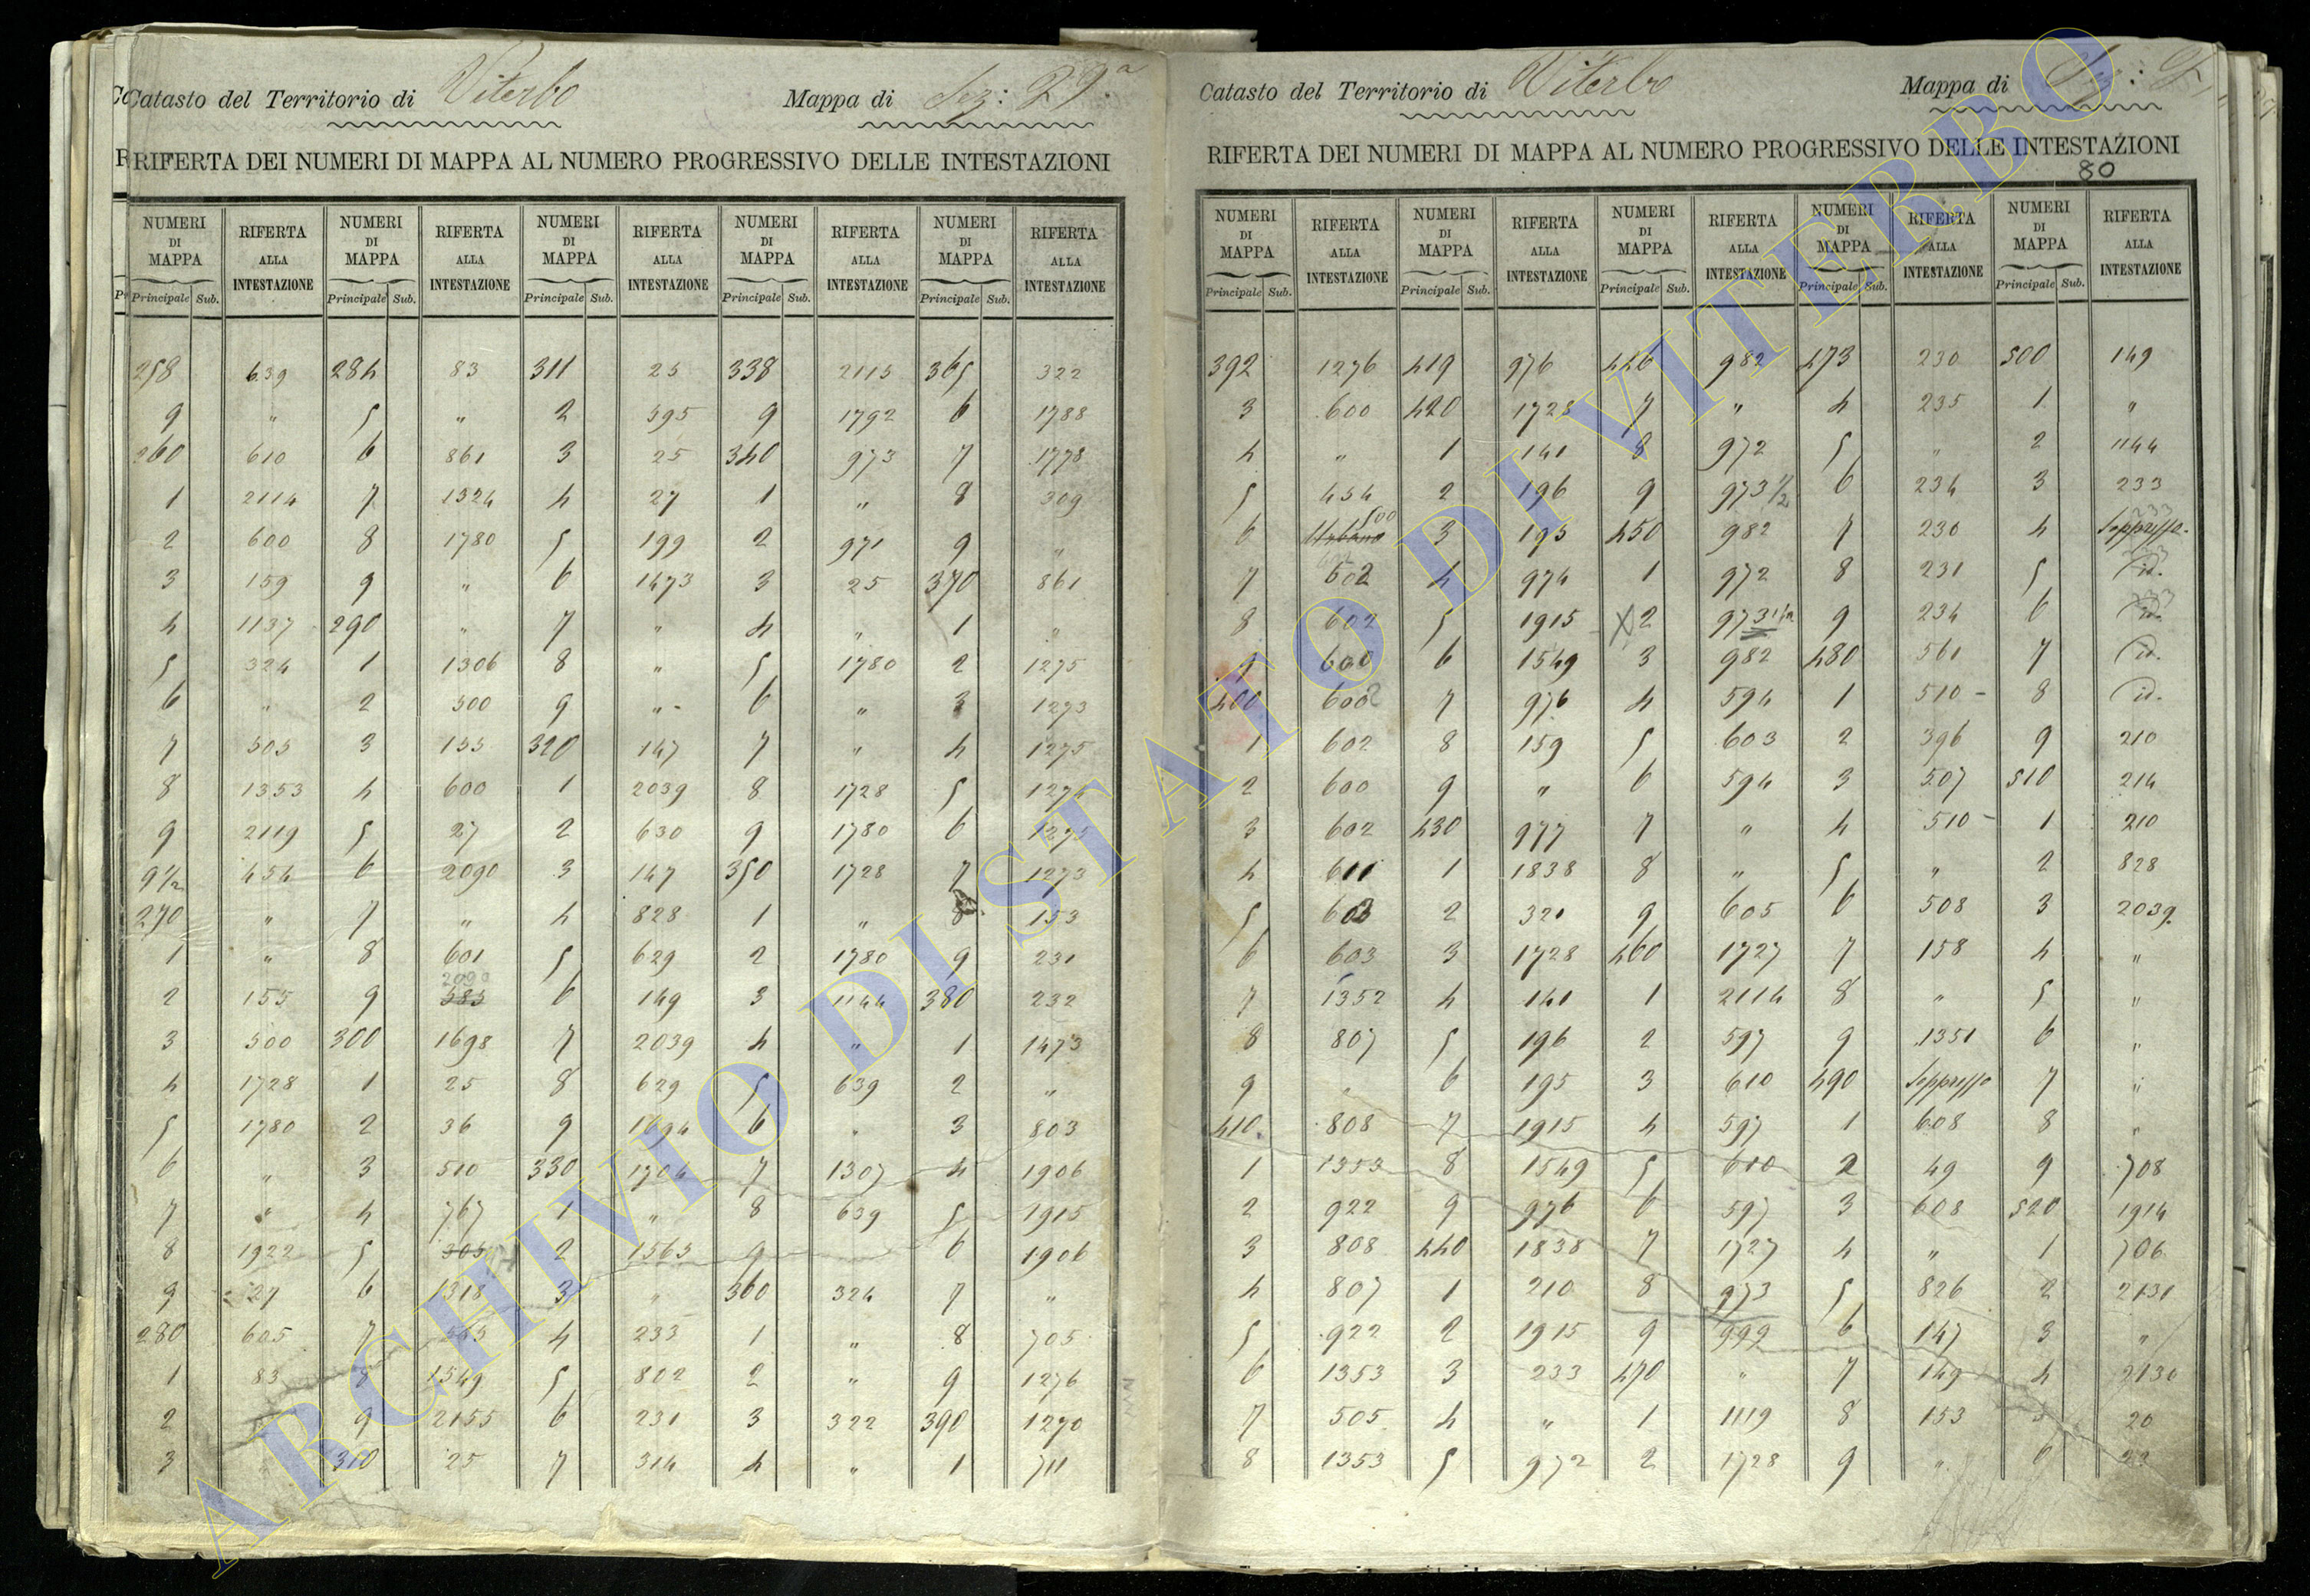 Catasto del Territorio di Viterbo Mappa di Sez: 29.a
RIFERTA DEI NUMERI DI MAPPA AL NUMERO PROGRESSIVO DELLE INTESTAZIONI
NUMERI DI MAPPA RIFERTA ALLA INTESTAZIONE NUMERI DI MAPPA RIFERTA ALLA INTESTAZIONE NUMERI DI MAPPA RIFERTA ALLA INTESTAZIONE NUMERI DI MAPPA RIFERTA ALLA INTESTAZIONE NUMERI DI MAPPA RIFERTA ALLA INTESTAZIONE
Principale Sub. Principale Sub. Principale Sub. Principale Sub. Principale Sub.
258 639 284 83 311 25 338 2115 365 322
9 " 5 " 2 595 9 1792 6 1788
260 610 6 861 3 25 340 973 7 1778
1 2114 7 1324 4 27 1 " 8 309
2 600 8 1780 5 199 2 971 9 "
3 159 9 " 6 1473 3 25 370 861
4 1137 290 " 7 " 4 " 1 "
5 324 1 1306 8 " 5 1780 2 1275
6 " 2 500 9 " 6 " 3 1273
7 505 3 155 320 147 7 " 4 1275
8 1353 4 600 1 2039 8 1728 5
9 2119 5 27 2 630 9 1780 6 1275
9 1/2 454 6 2090 3 147 350 1728 7 1273
270 " 7 " 4 828 1 " 8 153
1 " 8 601 5 629 2 1780 9 231
2 155 9 2090 6 149 3 1144 380 232
3 500 300 1698 7 2039 4 " 1 1473
4 1728 1 25 8 629 5 639 2 "
5 1780 2 36 9 1694 6 " 3 803
6 " 3 510 330 1704 7 1307 4 1906
7 " 4 767 1 " 8 639 5 1915
8 1922 5 305 2 1563 9 6 1906
9 27 6 1318 3 " 360 324 7 "
280 605 7 4 233 1 " 8 705
1 83 8 1549 5 802 2 " 9 1276
2 9 2155 6 231 3 322 390 1270
3 310 25 7 314 4 " 1 711
Catasto del Territorio di Viterbo Mappa di Sez:
RIFERTA DEI NUMERI DI MAPPA AL NUMERO PROGRESSIVO DELLE INTESTAZIONI
80
NUMERI DI MAPPA RIFERTA ALLA INTESTAZIONE NUMERI DI MAPPA RIFERTA ALLA INTESTAZIONE NUMERI DI MAPPA RIFERTA ALLA INTESTAZIONE NUMERI DI MAPPA RIFERTA ALLA INTESTAZIONE NUMERI DI MAPPA RIFERTA ALLA INTESTAZIONE
Principale Sub. Principale Sub. Principale Sub. Principale Sub. Principale Sub.
392 1276 419 976 446 982 473 230 500 149
3 600 420 1728 7 " 4 235 1 "
4 " 1 141 8 972 5 " 2 1144
5 454 2 196 9 973 1/2 6 234 3 233
6 500 3 195 450 982 7 230 4 Soppresso. 233
7 602 4 974 1 972 8 231 5 id. 233
8 602 5 1915 X 2 973 1/2 9 234 6 id. 233
9 600 6 1549 3 982 480 561 7 id.
400 602 7 976 4 594 1 510 - 8 id.
1 602 8 159 5 603 2 396 9 210
2 600 9 " 6 594 3 507 510 214
3 602 430 977 7 " 4 510 - 1 210
4 611 1 1838 8 " 5 " 2 828
5 603 2 321 9 605 6 508 3 2039.
6 603 3 1728 460 1727 7 158 4 "
7 1352 4 141 1 2114 8 " 5 "
8 807 5 196 2 597 9 1351 6 "
9 " 6 195 3 610 490 Soppresso 7 "
410 808 7 1915 4 597 1 608 8 "
1 1353 8 1549 5 610 2 49 9 708
2 922 9 976 6 597 3 608 520 1914
3 808 440 1838 7 1727 4 " 1 706
4 807 1 210 8 973 5 826 2 2131
5 922 2 1915 9 999 6 147 3 "
6 1353 3 233 470 " 7 149 4 2130
7 505 4 " 1 1119 8 153 5 20
8 1353 5 972 2 1728 9 " 6 23
ARCHIVIO DI STATO DI VITERBO